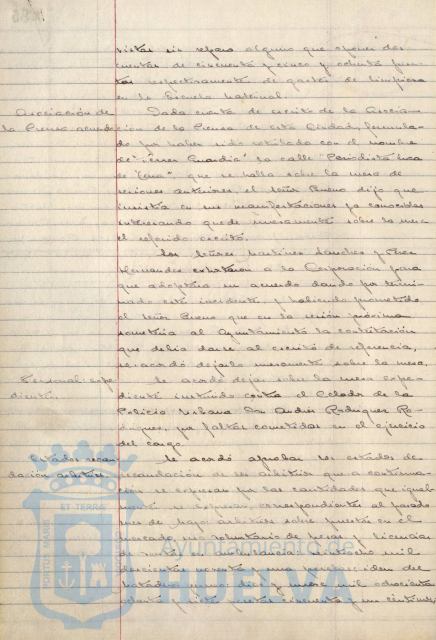 vistas sin reparo alguno que oponer dos
cuentas de cincuenta y cinco y ochenta pese-
tas respectivamente de gastos de limpieza
en la Escuela Maternal.
Asociación de
la Prensa
Dada cuenta de escrito de la Asocia-
ción de la Prensa de esta Ciudad, formula-
do por haber sido rotulado con el nombre
de "Ferrer Guardia" la calle "Periodista Luca
de Tena" que se halla sobre la mesa de
sesiones anteriores, el señor Bueno dijo que
insistía en sus manifestaciones ya conocidas
interesando quede nuevamente sobre la mesa
el referido escrito.
Los señores Martínez Sánchez y
Hernandez exhortaron a la Corporación para
que adoptara un acuerdo dando por termi-
nado este incidente y habiendo prometido
el señor Bueno que en la sesión próxima
sometería al Ayuntamiento la contestación
que debía darse al escrito de referencia,
se acordó dejarlo nuevamente sobre la mesa.
Personal: expe-
diente.
Se acordó dejar sobre la mesa expe-
diente instruido contra el Celador de la
Policía Urbana Don Andrés Rodriguez Ro-
driguez, por faltas cometidas en el ejercicio
del cargo.
Estados recau-
dación arbitrios
Se acordó aprobar los estados de
recaudación de los arbitrios que a continua-
ción se expresan por las cantidades que igual-
mente se expresan, correspondientes al pasado
mes de Mayo: arbitrios sobre puestos en el
mercado, uso voluntario de pesas y licencias
de
doscientas noventa y una pesetas
once mil ochocientas
ochenta y siete pesetas cincuenta y un céntimos
PORTUS MARIS ET TERRAE
Ayuntamiento de
HUELVA